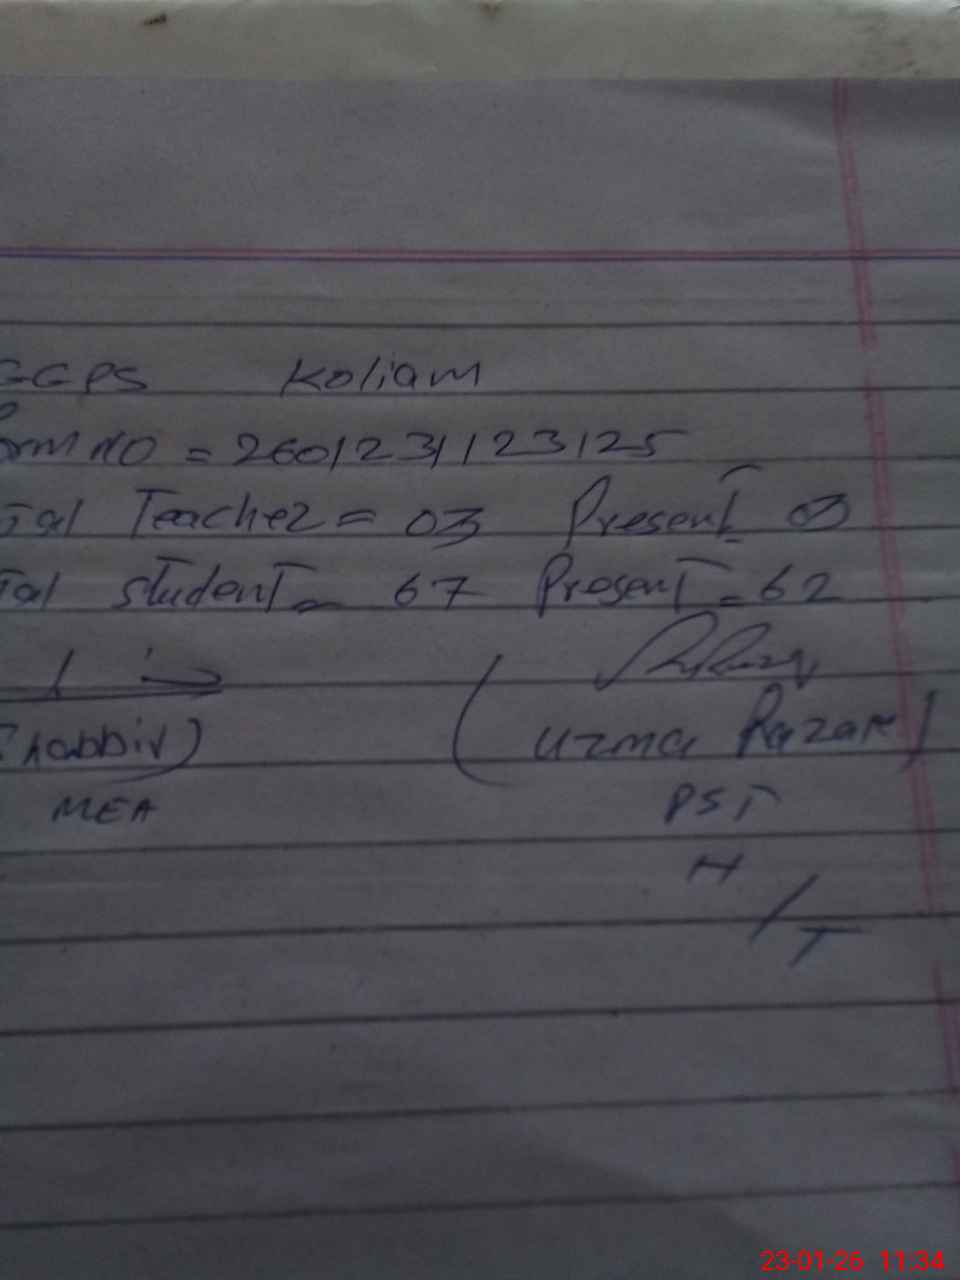 GGPS Koliam
Form NO = 260123112 3125
Total Teacher = 03 Present = 03
Total student = 67 Present = 62
(Shabbir) (Uzma Razak)
MEA PST
H/T
23-01-26 11:34